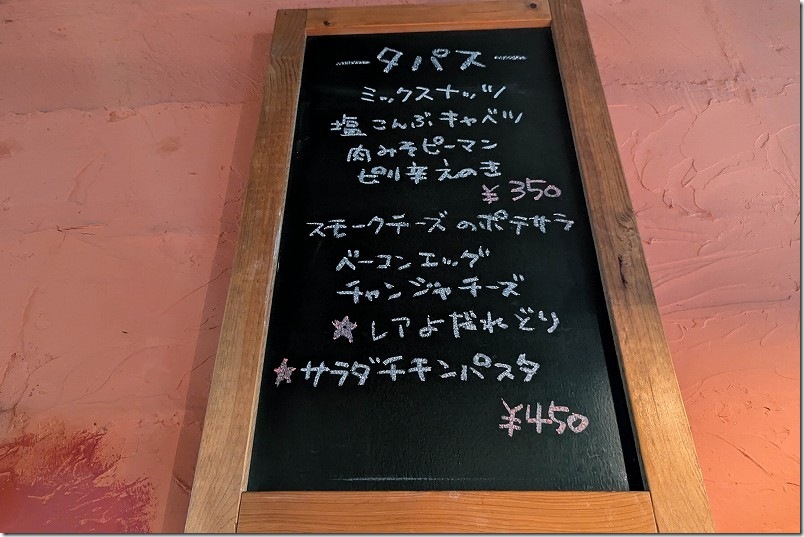 ータパスー
ミックスナッツ
塩こんぶキャベツ
肉みそピーマン
ピリ辛えのき
¥350
スモークチーズのポテサラ
ベーコンエッグ
チャンジャチーズ
★レアよだれどり
★サラダチキンパスタ
¥450